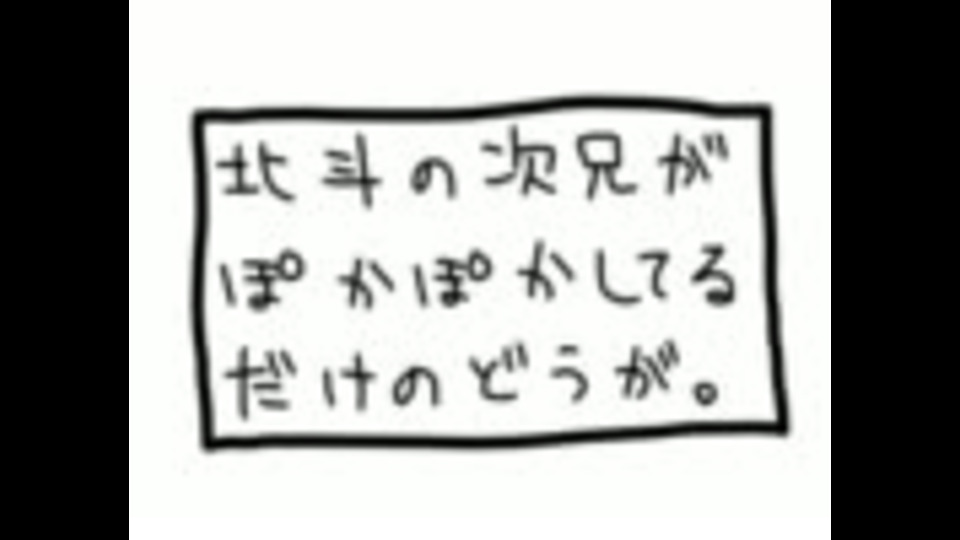 北斗の次兄が
ぽかぽかしてる
だけのどうが。